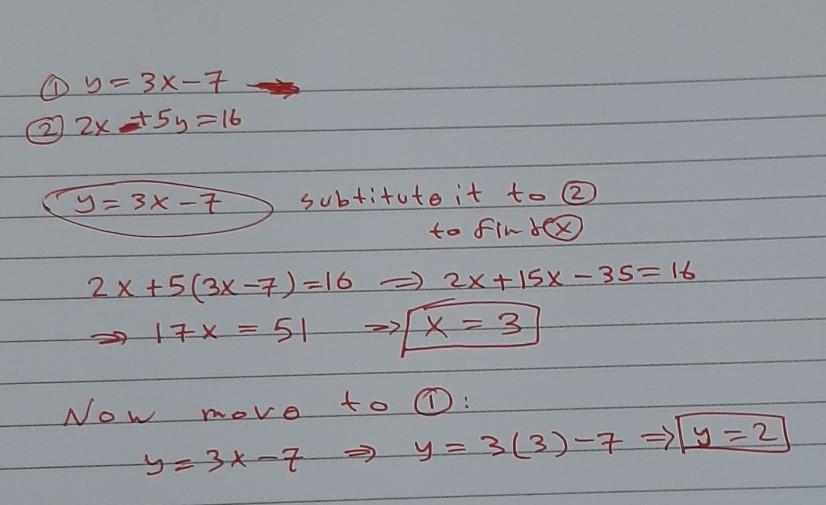 ① y = 3x - 7
② 2x + 5y = 16
y = 3x - 7 subtitute it to ②
to find ⓧ
2x + 5(3x - 7) = 16 ⇒ 2x + 15x - 35 = 16
⇒ 17x = 51 ⇒ x = 3
Now move to ①:
y = 3x - 7 ⇒ y = 3(3) - 7 ⇒ y = 2